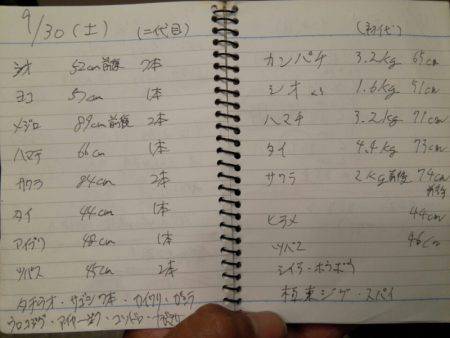 9/30 (土) (二代目)
シオ 52cm前後 7本
ヨコ 57cm 1本
メジロ 89cm前後 2本
ハマチ 66cm 1本
サワラ 84cm 2本
タイ 44cm 1本
アイブリ 48cm 1本
ツバス 45cm 2本
タチウオ・サゴシ7本・カイワリ・
(初代)
カンパチ 3.2kg 65cm
シオ 1.6kg 51cm
ハマチ 3.2kg 71cm
タイ 4.4kg 73cm
サワラ 2kg前後 74cm前後
ヒラメ 44cm
ツバス 46cm
シイラ・ホウボウ
極東ジグ・スパイ